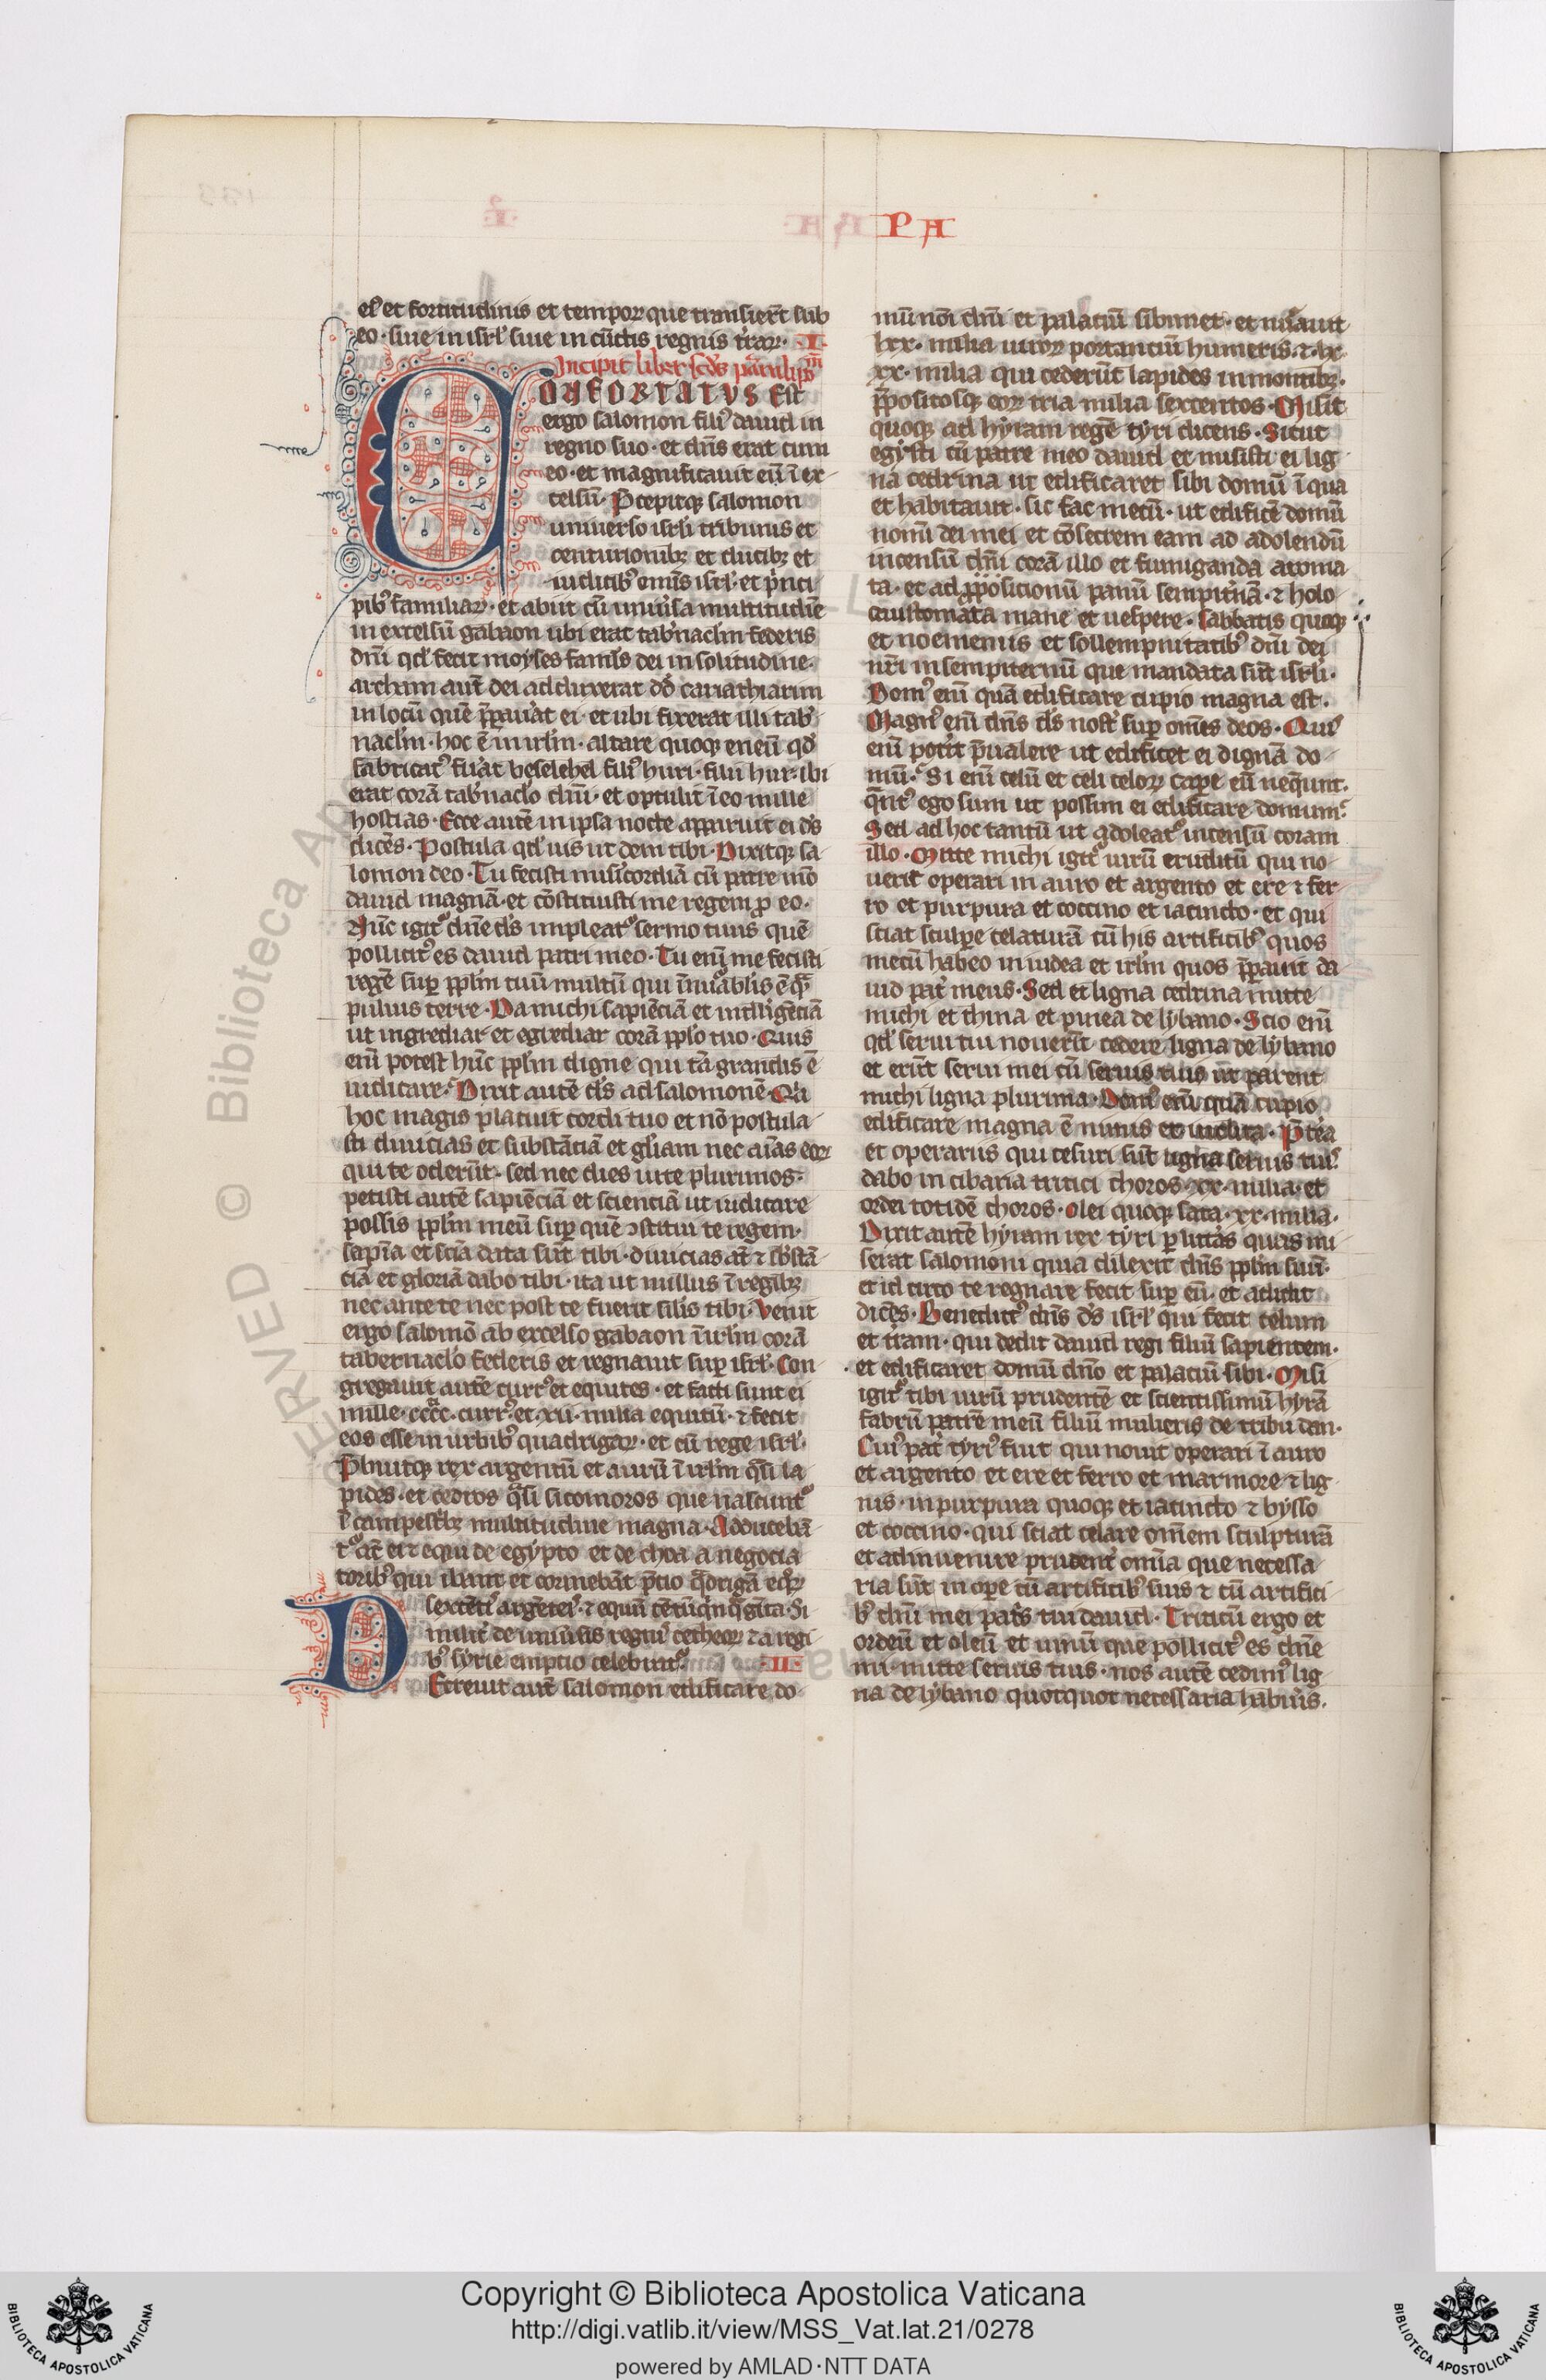 P A
el' et fortitudinis et temporꝝ que transierūt sub
eo · siue in isrl' siue in cūctis regnis t̄rarꝝ · I ·
Incipit liber scd's paralip̄m̄
CONFORTATUS Est
ergo salomon fili9 dauid in
regno suo · et dn̄s erat cum
eo · et magnificauit eū ī ex
celsū · P̄cepitqꝫ salomon
uniuerso isrl'i tribunis et
centurionibꝫ et ducibꝫ et
iudicib9 om̄is isrl' · et p̄nci
pib9 familiarꝝ · et abiit cū uniu'sa multitudīe
in excelsū gabaon ubi erat tab'nacl'm federis
dn̄i qd' fecit moyses famul's dei in solitudine ·
archam aut̄ dei adduxerat dd' cariathiarim
in locū quē p̄pau'at ei · et ubi fixerat illi tab'
nacl'm · hoc ē in irl'm · altare quoqꝫ eneū qd'
fabricat9 fu'at beselehel fili9 huri · filii hur · ibi
erat corā tab'naclo dn̄i · et optulit ī eo mille
hostias · Ecce autē in ipsa nocte apparuit ei d's
dicēs · Postula qd' uis ut dem tibi · Dixitqꝫ sa
lomon deo · Tu fecisti mis'icordiā cū patre m̄o
dauid magnā · et cōstituisti me regem ꝓ eo ·
Nūc igit' dn̄e d's impleat' sermo tuus quē
pollicit9 es dauid patri meo · Tu enī me fecisti
regē suꝑ ppl'm tuū multū qui īnūablis ē qͣ̄
puluis terre · Da michi sapiēciā et intll'igēciā
ut ingrediar et egrediar corā ppl'o tuo · Quis
enī potest hūc ppl'm digne qui tā grandis ē
iudicare · Dixit autē d's ad salomonē · Qͥa
hoc magis placuit cordi tuo et nō postula
sti diuicias et substāciā et gl'iam nec aīas eorꝝ
qui te oderūt · sed nec dies uite plurimos ·
petisti autē sapiēciā et scienciā ut iudicare
possis ppl'm meū suꝑ quē ꝯstitui te regem ·
sapīa et sciā data sūt tibi · diuicias at̄ ⁊ sb'stā
ciā et gloriā dabo tibi · ita ut nullus ī regibꝫ
nec ante te nec post te fuerit silis tibi · Venit
ergo salomō ab excelso gabaon ī irl'm corā
tabernaclo federis et regnauit suꝑ isrl' · Con
gregauit autē curr9 et equites · et facti sunt ei
mille · cccc · curr9 · et · xii · milia equitū · ⁊ fecit
eos esse in urbib9 quadrigarꝝ · et cū rege isrl' ·
P̄buitqꝫ rex argentū et aurū ī irl'm qͣsi la
pides · et cedros qͣsi sicomoros que nascunt'
ī campestr'bꝫ multitudine magna · Adducebā
t' at̄ ei ⁊ equi de egypto et de choa a negocia
torib9 qui ibant et coemebāt p̄cio qͣdrigā eqͦrꝝ
sexcētis argēteis · ⁊ equū cētū qͥnqͣgīta · Si
milit' de uniu'sis regnis cetheorꝝ ⁊ a regi
b9 syrie emptio celebrat' · II ·
DEcreuit aut̄ salomon edificare do
mū nōī dn̄i et palaciū sibimet · et nūauit
lxx · milia uirorꝝ portanciū humeris · ⁊ · lx
xx · milia qui cederūt lapides in montibꝫ ·
p̄positosqꝫ eorꝝ tria milia sexcentos · Misit
quoqꝫ ad hyram regē tyri dicens · Sicut
egisti cū patre meo dauid et misisti ei lig
na cedrina ut edificaret sibi domū ī qua
et habitauit · sic fac mecū · ut edificē domū
nomī dei mei et cōsecrem eam ad adolendū
incensū dn̄i corā illo et fumigandā aroma
ta · et ad ꝓposicionū panū sempit'nā · ⁊ holo
caustomata mane et uespere · Sabbatis quoqꝫ
et noemeniis et sollempnitatib9 dn̄i dei
nr̄i in sempiternū que mandata sūt isrl'i ·
Dom9 enī quā edificare cupio magna est ·
Magn9 enī dn̄s d's nost' suꝑ om̄es deos · Quis
enī potit p̄ualere ut edificet ei dignā do
mū · Si enī celū et celi celorꝝ caꝑe eū neqūnt ·
qͣnt9 ego sum ut possim ei edificare domum ·
Sed ad hoc tantū ut adoleat' incensū coram
illo · Mitte michi igit' uirū eruditū qui no
uerit operari in auro et argento et ere ⁊ fer
ro et purpura et coccino et iacincto · et qui
sciat sculpe celaturā cū his artificib9 quos
mecū habeo in iudea et irl'm quos p̄parauit da
uid pat' meus · Sed et ligna cedrina mitte
michi et thina et pinea de lybano · Scio enī
qd' serui tui nouerīt cedere ligna de lybano
et erūt serui mei cū seruis tuis ut parent
michi ligna plurima · Dom9 enī quā cupio
edificare magna ē nimis et inclita · P̄t'ea
et operariis qui cesuri sūt ligna seruis tuis
dabo in cibaria tritici choros · xx · milia · et
ordei totidē choros · Olei quoqꝫ sata · xx · milia ·
Dixit autē hyram rex tyri ꝑ litt'as quas mi
serat salomoni quia dilexit dn̄s ppl'm suū ·
et id circo te regnare fecit suꝑ eū · et addidit
dicēs · Benedict9 dn̄s d's isrl' qui fecit celum
et t'ram · qui dedit dauid regi filiū sapientem ·
et edificaret domū dn̄o et palaciū sibi · Misi
igit' tibi uirū prudentē et scientissimū hyrā
fabrū patrē meū filiū mulieris de tribu dan ·
Cui9 pat' tyri9 fuit qui nouit operari ī auro
et argento et ere et ferro et marmore ⁊ lig
nis · in purpura quoqꝫ et iacincto ⁊ bysso
et coccino · qui sciat celare om̄em sculpturā
et adinuenire prudent' om̄ia que necessa
ria sūt in oꝑe cū artificib9 suis ⁊ cū artifici
b9 dn̄i mei pat's tui dauid · Triticū ergo et
ordeū et oleū et uinū que pollicit9 es dn̄e
mi mitte seruis tuis · nos autē cedim9 lig
na de lybano quotquot necessaria habu'is ·
Copyright © Biblioteca Apostolica Vaticana
http://digi.vatlib.it/view/MSS_Vat.lat.21/0278
powered by AMLAD·NTT DATA
BIBLIOTECA APOSTOLICA VATICANA
BIBLIOTECA APOSTOLICA VATICANA